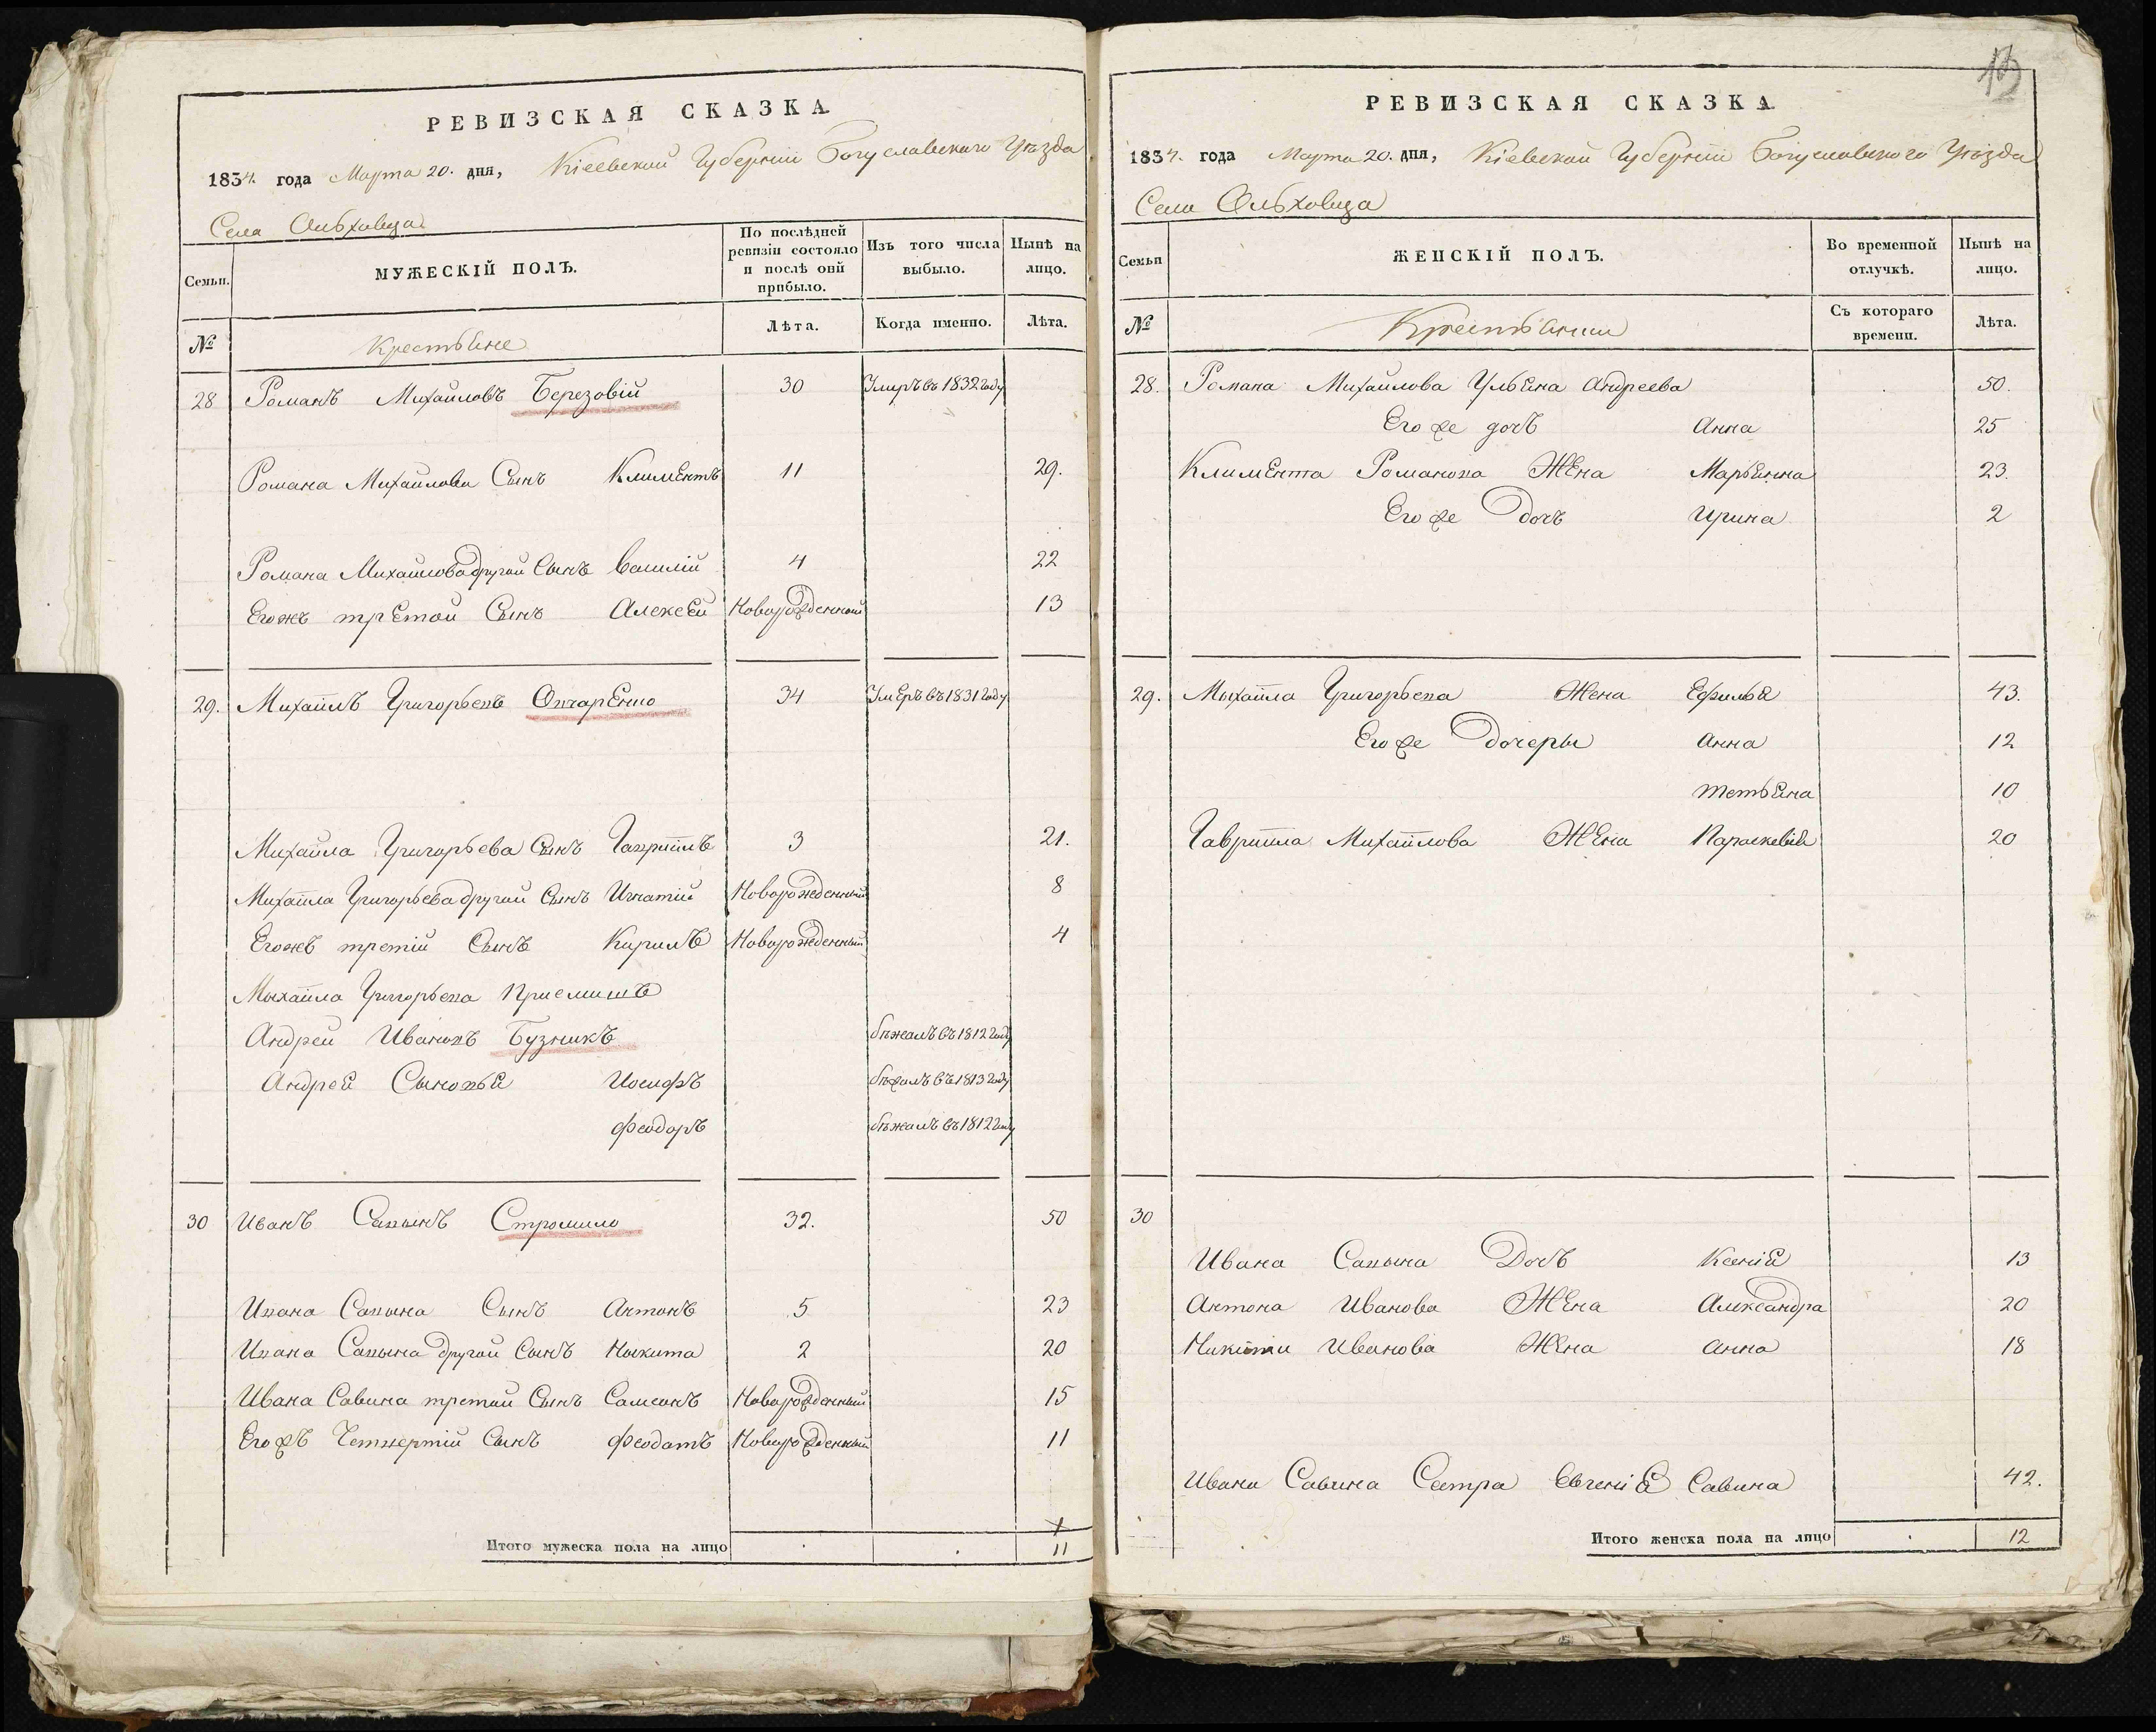 РЕВИЗСКАЯ СКАЗКА
1834. года Марта 20. дня, Кіевской Губерніи Богуславскаго Уѣзда
Села Ольховца
Семьи.
МУЖЕСКІЙ ПОЛЪ.
По послѣдней ревизіи состояло и послѣ оній прибыло.
Изъ того числа выбыло.
Нынѣ на лицо.
№
Крестьяне
Лѣта.
Когда именно.
Лѣта.
28 Романъ Михайловъ Березовій 30 Умиръ въ 1832 году
Романа Михайлова Сынъ Климентъ 11 29.
Романа Михайлова другой Сынъ Василій 4 22
Егожъ третой Сынъ Алексей Новорожденной 13
29. Михаилъ Григорьевъ Овчаренко 34 Умеръ въ 1831 году
Михайла Григорьева Сынъ Гаврiилъ 3 21.
Михаила Григорьева другой Сынъ Игнатій Новорожденный 8
Егожъ третій Сынъ Кирилъ Новорожденный 4
Михаила Григорьева Приемишъ
Андрей Ивановъ Бузникъ бѣжалъ въ 1812 году
Андрея Сыновья Иосифъ бѣжалъ въ 1813 году
Феодоръ бѣжалъ въ 1812 году
30 Иванъ Савынъ Стромило 32. 50
Ивана Савына Сынъ Антонъ 5 23
Ивана Савына другой Сынъ Никита 2 20
Ивана Савина третой Сынъ Самсонъ Новорожденный 15
Егожъ Четвертій Сынъ Феодатъ Новорожденный 11
Итого мужеска пола на лицо 11
РЕВИЗСКАЯ СКАЗКА
1834. года Марта 20. дня, Кіевской Губерніи Богуславского Уѣзда
Села Ольховца
Семьи
ЖЕНСКІЙ ПОЛЪ.
Во временной отлучкѣ.
Нынѣ на лицо.
№
Крестьянки
Съ котораго времени.
Лѣта.
28. Романа Михайлова Ульяна Андреева 50.
Его же дочь Анна 25
Климента Романова Жена Марьянна 23.
Его же Дочь Ирина 2
29. Михаила Григорьева Жена Ефимья 43.
Его же Дочеры Анна 12
Тетьяна 10
Гавриила Михаилова Жена Параскевія 20
30
Ивана Савына Дочь Ксенія 13
Антона Иванова Жена Александра 20
Никиты Иванова Жена Анна 18
Ивана Савина Сестра Евгенія Савина 42.
Итого женска пола на лицо 12